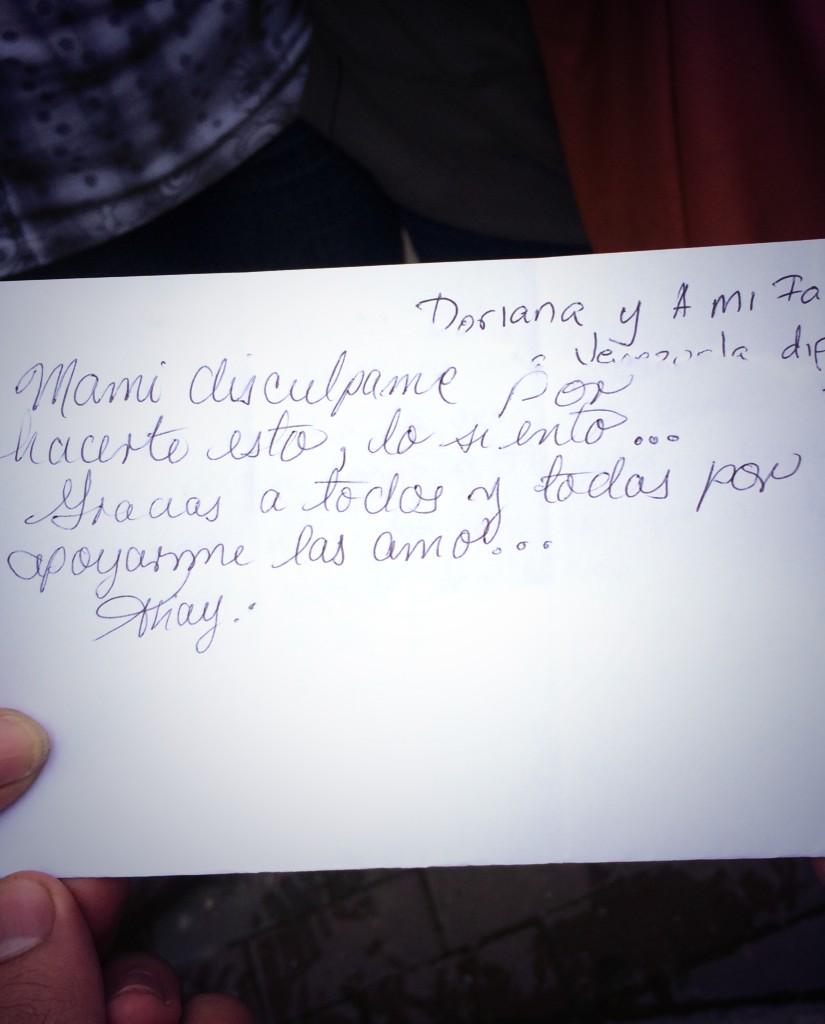 Doriana y A mi Fa
dif
Mami disculpame por
hacerte esto, lo siento...
Gracias a todos y todas por
apoyarme las amo...
Anay.